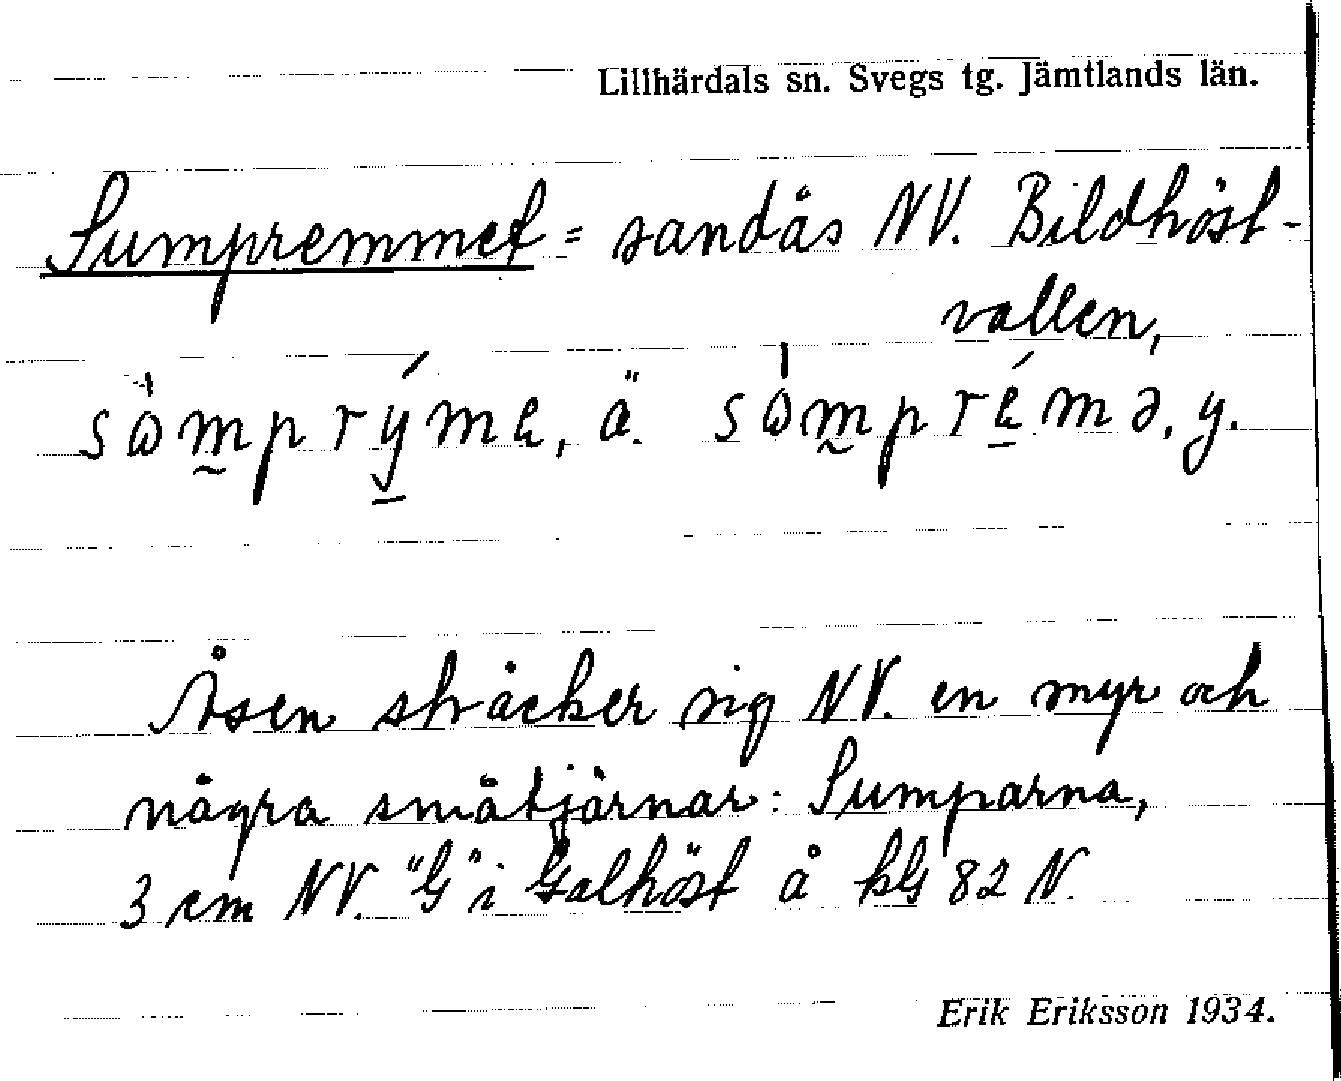 Lillhärdals sn. Svegs tg. Jämtlands län.
Sumpremmet = sandås NV. Bildhöst-
vallen,
sòmprýme, ä. sòmprémə, y.
Åsen sträcker sig NV. en myr och
några småtjärnar: Sumparna,
3 cm NV. "G" i Galhöst å kbl 82 N.
Erik Eriksson 1934.